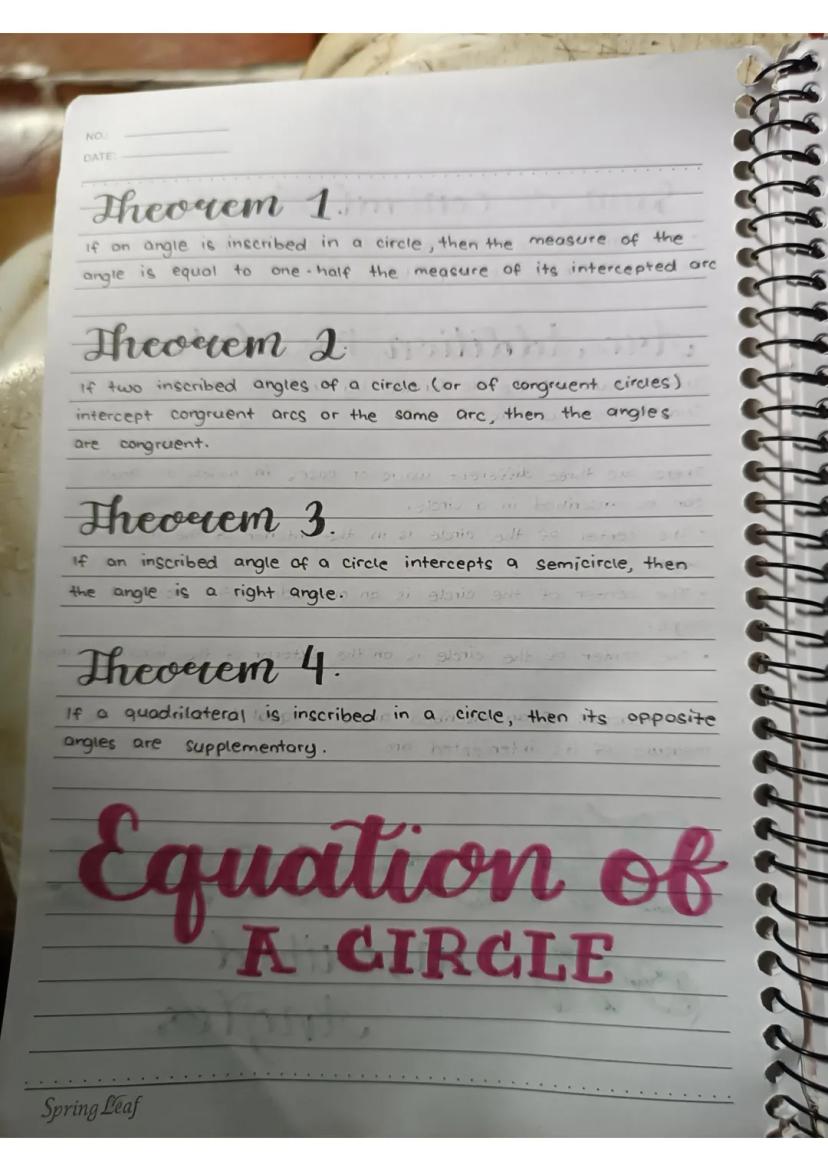 NO.:
DATE:
Theorem 1.
If an angle is inscribed in a circle, then the measure of the
angle is equal to one-half the measure of its intercepted arc
Theorem 2.
If two inscribed angles of a circle (or of congruent circles)
intercept congruent arcs or the same arc, then the angles
are congruent.
Theorem 3.
If an inscribed angle of a circle intercepts a semicircle, then
the angle is a right angle.
Theorem 4.
If a quadrilateral is inscribed in a circle, then its opposite
angles are supplementary.
Equation of
A CIRCLE
Spring Leaf